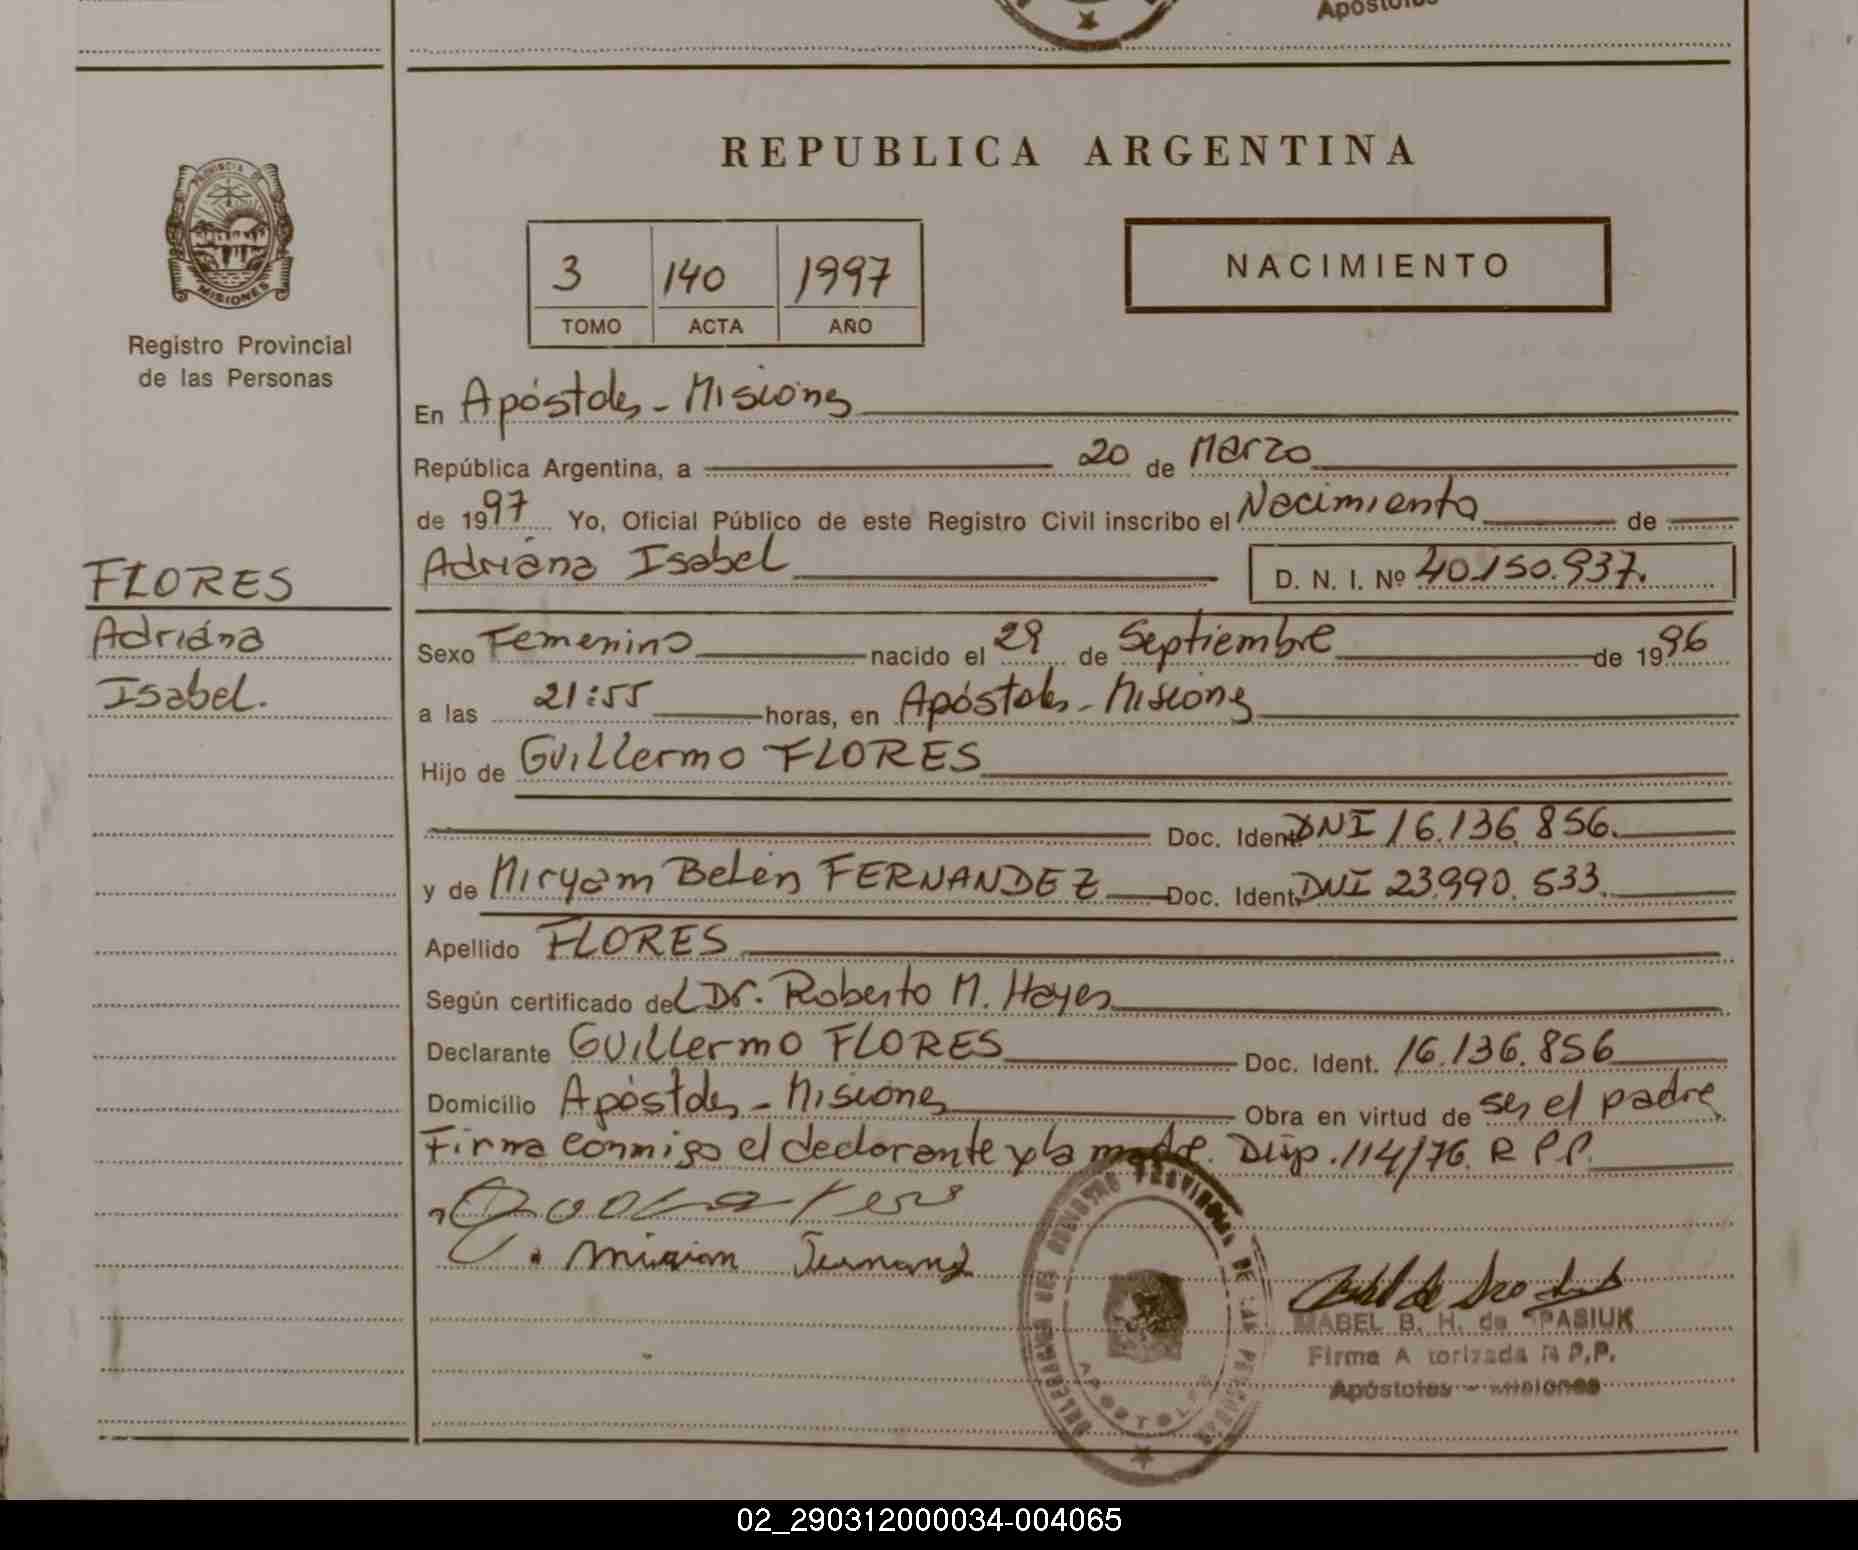 Apóstoles
REPUBLICA ARGENTINA
PROVINCIA DE
MISIONES
Registro Provincial
de las Personas
3 140 1997
TOMO ACTA AÑO
NACIMIENTO
En Apóstoles - Misiones
República Argentina, a 20 de Marzo
de 1997 Yo, Oficial Público de este Registro Civil inscribo el Nacimiento de
Adriana Isabel D. N. I. Nº 40.150.937.
FLORES
Adriana
Isabel.
Sexo Femenino nacido el 29 de Septiembre de 1996
a las 21:55 horas, en Apóstoles - Misiones
Hijo de Guillermo FLORES
Doc. Ident. DNI 16.136.856.
y de Miryam Belén FERNANDEZ Doc. Ident. DNI 23.990.533.
Apellido FLORES
Según certificado del Dr. Roberto M. Hayes
Declarante Guillermo FLORES Doc. Ident. 16.136.856
Domicilio Apóstoles - Misiones Obra en virtud de ser el padre
Firma conmigo el declarante y la madre. Disp. 114/76. R P.P.
DEL REGISTRO PROVINCIAL DE LAS PERSONAS
APOSTOLES
MABEL B. H. de SPASIUK
Firma Autorizada R P.P.
Apóstoles - Misiones
02_290312000034-004065